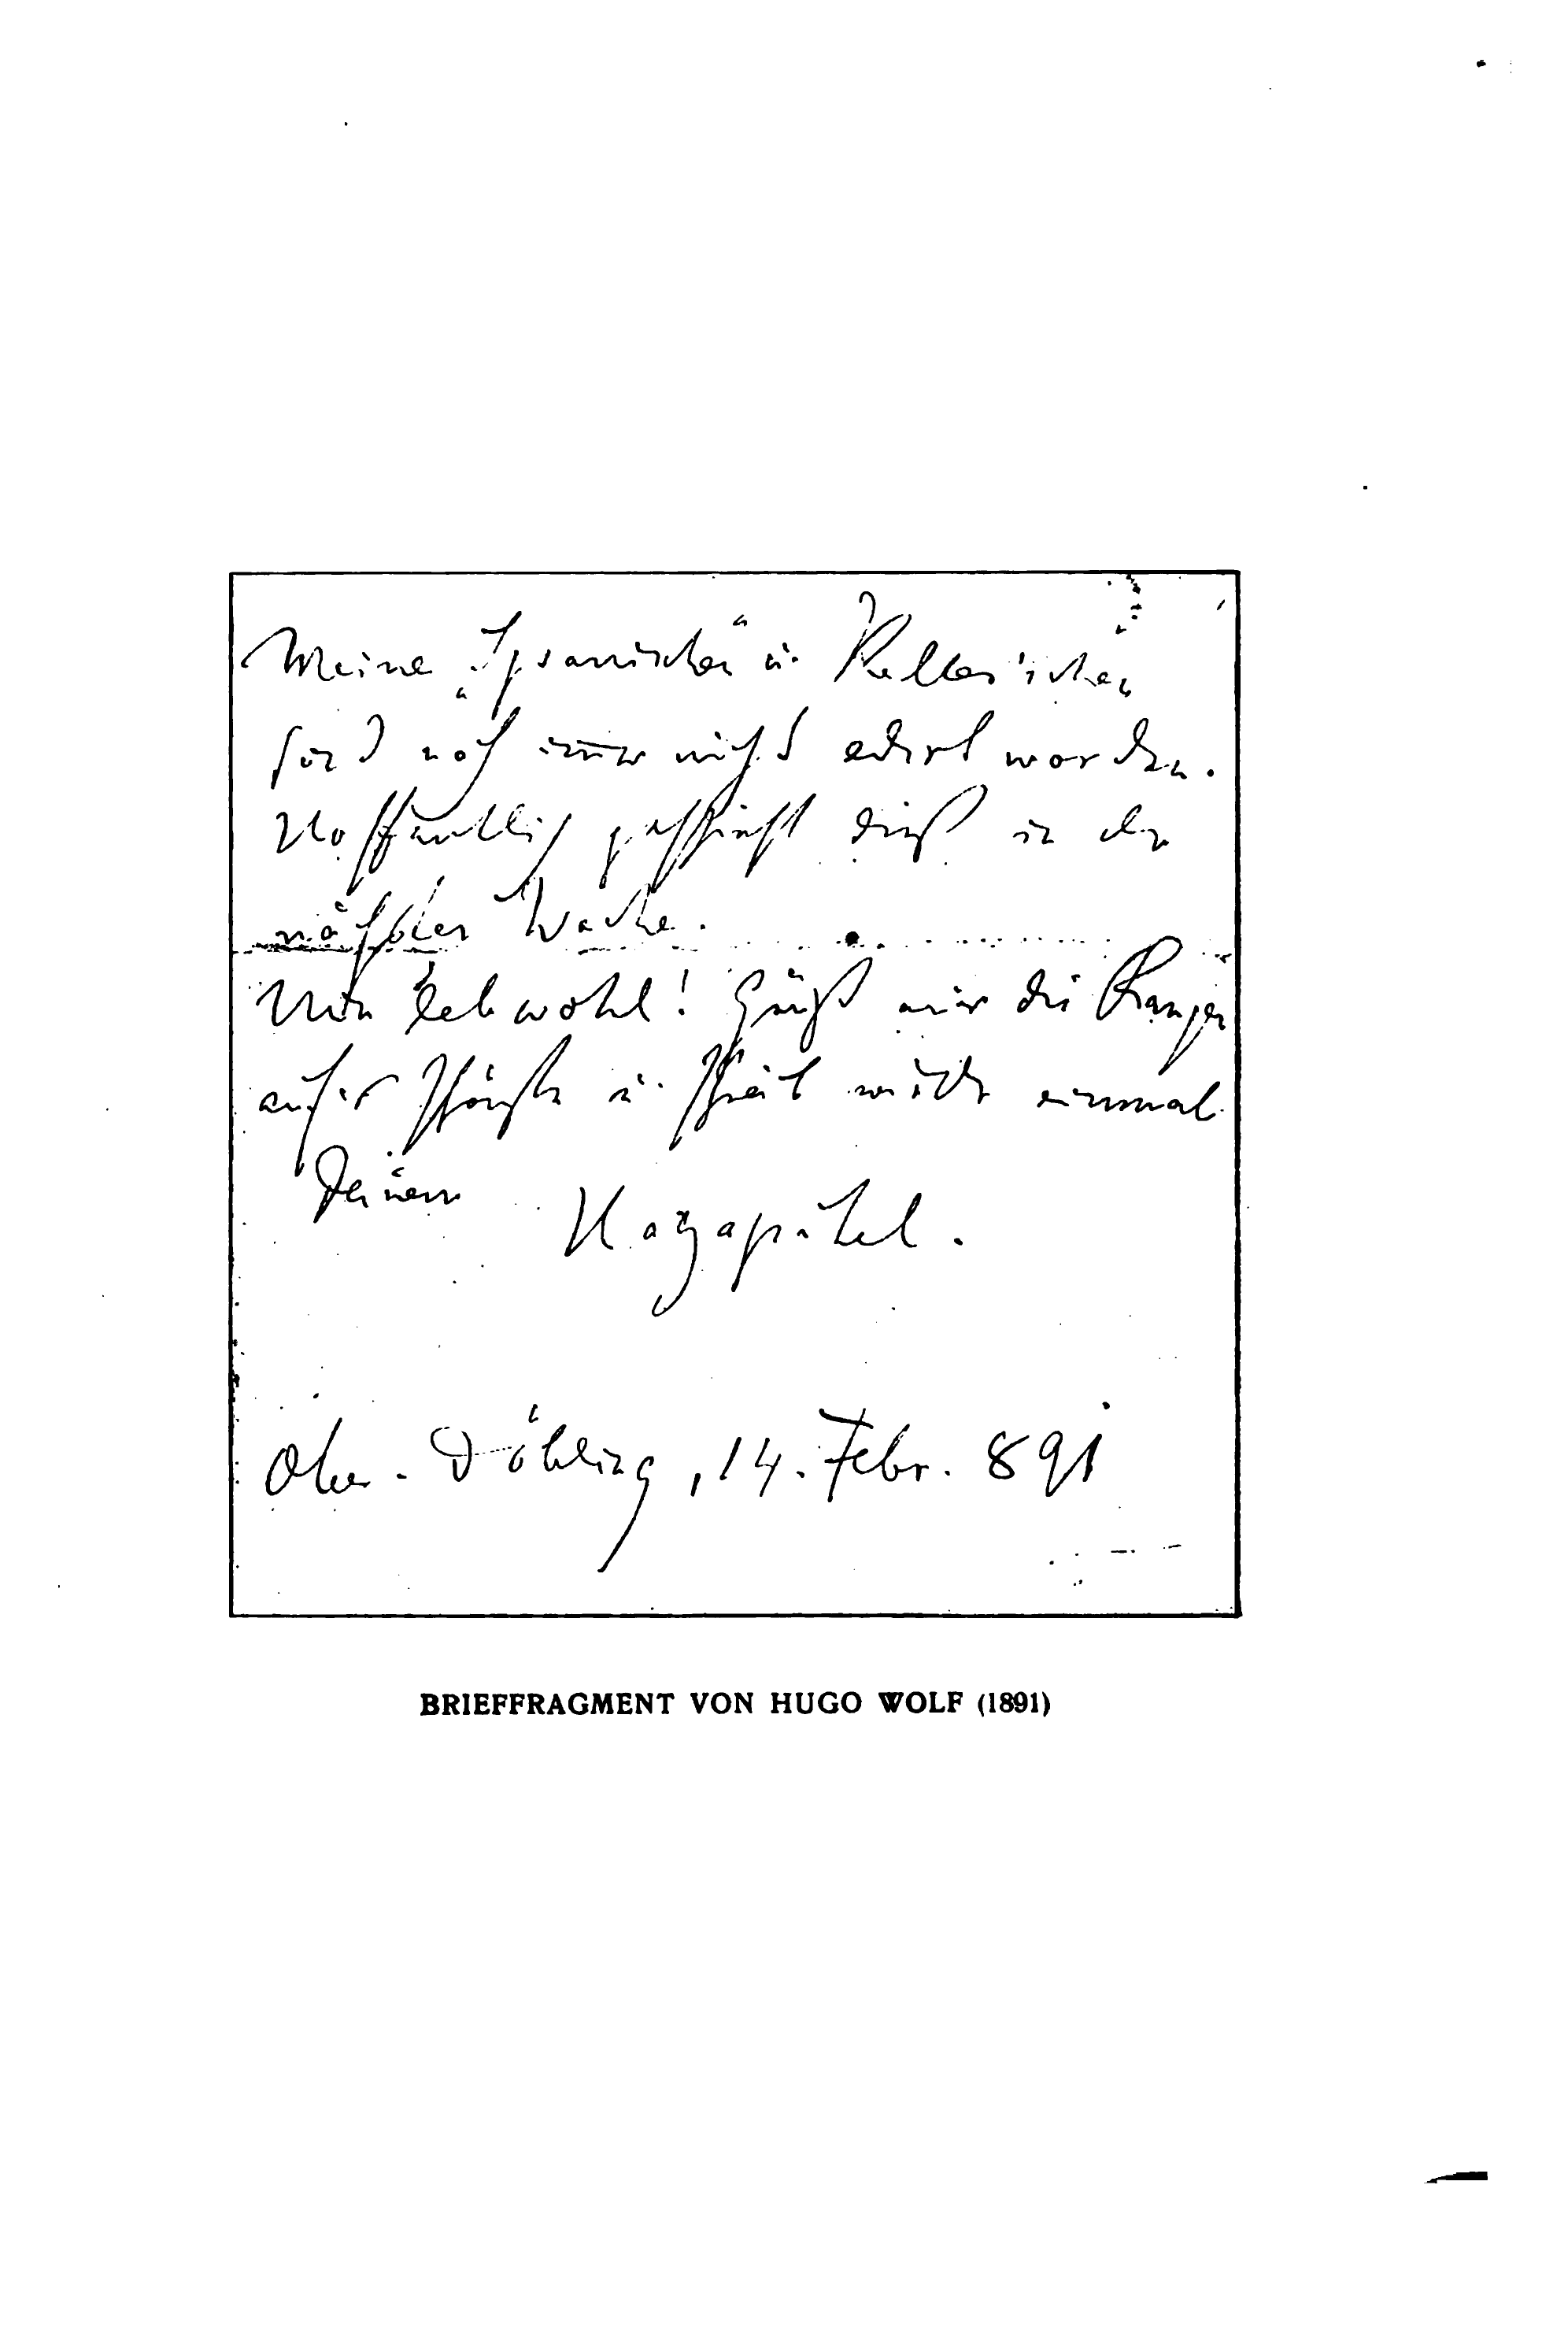 Meine „Spanischen“ u. Keller'schen
sind noch immer nicht edirt worden.
Hoffentlich geschieht dieß in der
nächsten Woche.
Nun leb wohl! Grüß mir die Rangen
auf's schönste u. schreib wieder einmal
Deinem
Ober-Döbling, 14. Febr. 891
BRIEFFRAGMENT VON HUGO WOLF (1891)